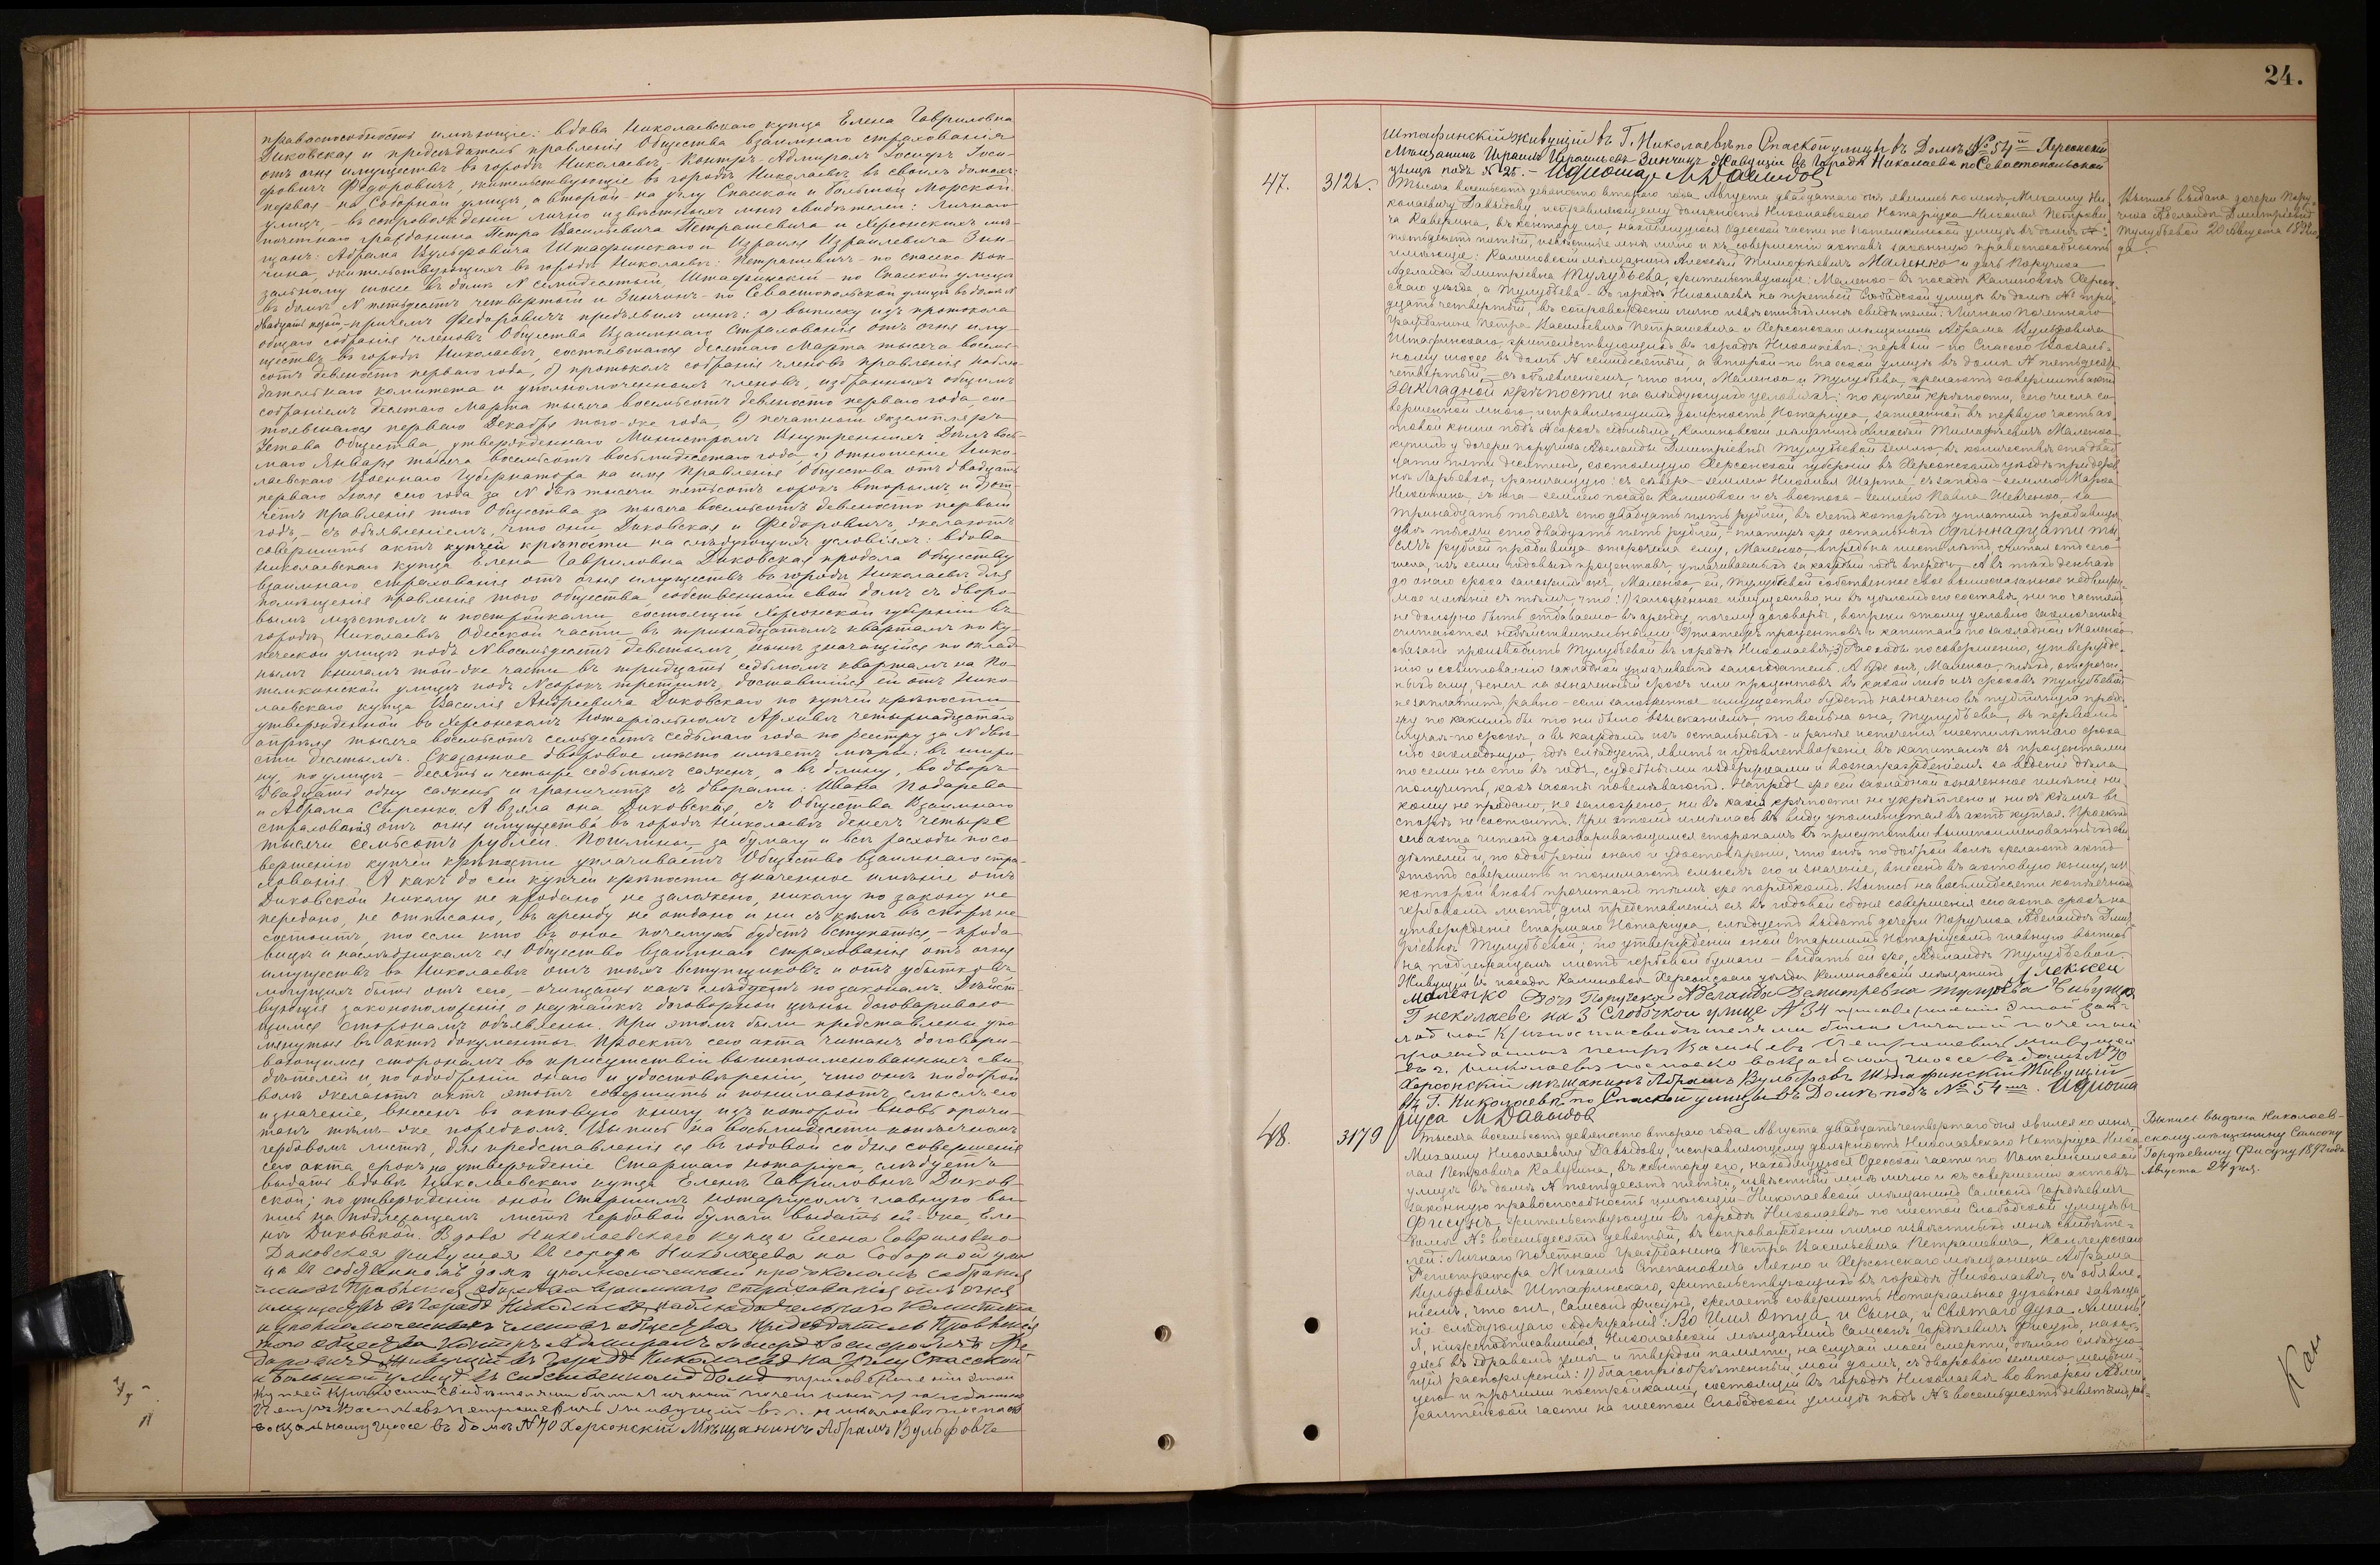 правоспособность имѣющіе: вдова Николаевскаго купца Елена Гавриловна
Диковская и предсѣдатель правленія Общества взаимнаго страхованія
отъ огня имуществъ въ городѣ Николаевѣ, Контръ-Адмиралъ Іосифъ Іоси-
фовичъ Федоровичъ, жительствующіе въ городѣ Николаевѣ въ своихъ домахъ:
первая - на Соборной улицѣ, а второй - на углу Спасской и Большой Морской
улицъ, - въ сопровожденіи лично извѣстныхъ мнѣ свидѣтелей: Личнаго
почетнаго гражданина Петра Васильевича Петрашевича и Херсонскихъ мѣ-
щанъ: Абрама Вульфовича Штафинскаго и Израиля Израилевича Зин-
чина, жительствующихъ въ городѣ Николаевѣ: Петрашевичъ - по Спасско-Вок-
зальному шоссе въ домѣ N семидесятый, Штафинскій - по Спасской улицѣ
въ домѣ N пятьдесятъ четвертый и Зинчинъ - по Севастопольской улицѣ въ домѣ N
двадцать - причемъ Федоровичъ предъявилъ мнѣ: а) выписку изъ протокола
общаго собранія членовъ Общества Взаимнаго Страхованія отъ огня иму-
ществъ въ городѣ Николаевѣ, состоявшагося десятаго Марта тысяча восемь-
сотъ девяносто перваго года, б) протоколъ собранія членовъ правленія наблю-
дательнаго комитета и уполномоченныхъ членовъ, избранныхъ общимъ
собраніемъ десятаго Марта тысяча восемьсотъ девяносто перваго года, сос-
тоявшагося перваго Декабря того-же года, в) печатный экземпляръ
Устава Общества, утвержденнаго Министромъ Внутреннихъ Дѣлъ вось-
маго Января тысяча восемьсотъ восьмидесятаго года, г) отношеніе Нико-
лаевскаго Военнаго Губернатора на имя Правленія Общества отъ двадцать
перваго Іюля сего года за N двѣ тысячи пятьсотъ сорокъ вторымъ и д) от-
четъ Правленія того Общества за тысяча восемьсотъ девяносто первый
годъ, - съ объявленіемъ, что они Диковская и Федоровичъ, желаютъ
совершить актъ купчей крѣпости на слѣдующихъ условіяхъ: вдова
Николаевскаго купца Елена Гавриловна Диковская продала Обществу
взаимнаго страхованія отъ огня имуществъ въ городѣ Николаевѣ для
помѣщенія правленія того общества, собственный свой домъ съ дворо-
вымъ мѣстомъ и постройками, состоящій Херсонской губерніи въ
городѣ Николаевѣ Одесской части въ тринадцатомъ кварталѣ по Ку-
нымъ книгамъ той-же части въ тридцать седьмомъ кварталѣ на По-
темкинской улицѣ подъ N сорокъ третьимъ, доставшійся ей отъ Нико-
лаевскаго купца Василія Андреевича Диковскаго по купчей крѣпости
утвержденной въ Херсонскомъ Нотаріальномъ Архивѣ четырнадцатаго
апрѣля тысяча восемьсотъ семьдесятъ седьмаго года по реестру за N двѣ-
сти десятымъ. Сказанное дворовое мѣсто имѣетъ мѣры: въ шири-
ну, по улицѣ - десять и четыре седьмыхъ сажень, а въ длину, во дворъ -
двадцать одну сажень и граничитъ съ дворами: Ивана Подарева
и Абрама Сиренко. А взяла она Диковская, съ Общества Взаимнаго
страхованія отъ огня имуществъ въ городѣ Николаевѣ денегъ четыре
тысячи семьсотъ рублей. Пошлины, за бумагу и всѣ расходы по со-
вершенію купчей крѣпости уплачиваетъ Общество взаимнаго стра-
хованія. А какъ до сей купчей крѣпости означенное имѣніе отъ
Диковской никому не продано, не заложено, никому по закону не
передано, не отписано, въ аренду не отдано и ни съ кѣмъ въ спорѣ не
состоитъ, то если кто въ оное почему либо будетъ вступаться, - прода-
вицѣ и наслѣдникамъ ея Общество взаимнаго страхованія отъ огня
имуществъ въ Николаевѣ отъ тѣхъ вступщиковъ и отъ убытковъ
могущихъ быть отъ сего, - очищать какъ слѣдуетъ по законамъ. Дѣйст-
вующія законоположенія о неутайкѣ договорной цѣны договариваю-
щимся сторонамъ объявлены. При этомъ были представлены упо-
мянутые въ актѣ документы. Проектъ сего акта читанъ договари-
вающимся сторонамъ въ присутствіи вышепоименованныхъ сви-
дѣтелей и, по одобреніи онаго и удостовѣреніи, что онѣ по доброй
волѣ желаютъ актъ этотъ совершить и понимаютъ смыслъ его
и значеніе, внесенъ въ актовую книгу изъ которой вновь прочи-
танъ тѣмъ-же порядкомъ. Выпись на восьмидесяти копѣечномъ
гербовомъ листѣ, для представленія ея въ годовой со дня совершенія
сего акта срокъ на утвержденіе Старшаго нотаріуса, слѣдуетъ
выдать вдовѣ Николаевскаго купца Еленѣ Гавриловнѣ Диков-
ской; по утвержденіи оной Старшимъ нотаріусомъ главную вы-
пись на подлежащемъ листѣ гербовой бумаги выдать ей-же, Еле-
нѣ Диковской. Вдова Николаевскаго купца Елена Гавриловна
Диковская живущая въ городѣ Николаевѣ на Соборной ули-
цѣ въ собственномъ домѣ уполномоченный протоколомъ собранія
членовъ Правленія общества взаимнаго страхованія отъ огня
имуществъ въ городѣ Николаевѣ, наблюдательнаго комитета
и уполномоченныхъ членовъ общества Предсѣдатель Правленія
того общества Контръ Адмиралъ Іосифъ Іосифовичъ Фе-
доровичъ живущій въ городѣ Николаевѣ на углу Спасской
и Большой улицъ въ собственномъ домѣ при совершеніи этой
купчей крѣпости свидѣтелями были Личный почетный гражданинъ
Петръ Васильевъ Петрашевичъ живущій въ г. Николаевѣ по Спаско
вокзальному шоссе въ домѣ N 70 Херсонскій Мѣщанинъ Абрамъ Вульфовъ

24.
Штафинскій живущій въ Г. Николаевѣ по Спаской улицы въ Домѣ № 54й Херсонскій
Мѣщанинъ Израиль Израилевъ Зинчинъ Живущій въ Городѣ Николаевѣ по Севастопольской
улицѣ подъ № 25. - И Д Нотаріуса М Давыдов
47. 3126. Тысяча восемьсотъ девяносто втораго года Августа двадцатаго дня явились ко мнѣ, Михаилу Ни-
колаевичу Давыдову, исправляющему должность Николаевскаго Нотаріуса Николая Петрови-
ча Каверина, въ контору его, находящуюся Одесской части по Потемкинской улицѣ въ домѣ N
пятьдесятъ пятый, извѣстные мнѣ лично и къ совершенію актовъ законную правоспособность
имѣющіе: Калиновскій мѣщанинъ Алексѣй Тимофѣевичъ Маленко и дочь Поручика
Аделаида Дмитріевна Тулубьева, жительствующіе: Маленко - въ посадѣ Калиновкѣ Херсон-
скаго уѣзда, а Тулубьева - въ городѣ Николаевѣ на третьей Слободской улицѣ въ домѣ № три-
дцать четвертый, въ сопровожденіи лично извѣстныхъ мнѣ свидѣтелей: Личнаго Почетнаго
Гражданина Петра Васильевича Петрашевича и Херсонскаго мѣщанина Абрама Вульфовича
Штафинскаго, жительствующихъ въ городѣ Николаевѣ: первый - по Спасско-Вокзаль-
ному шоссе въ домѣ N семидесятый, а второй - по Спасской улицѣ въ домѣ N пятьдесятъ
четвертый, - съ объявленіемъ, что они, Маленко и Тулубьева, желаютъ совершить актъ
закладной крѣпости на слѣдующихъ условіяхъ: по купчей крѣпости, сего числа со-
вершенной мною, исправляющимъ должность Нотаріуса, записанной въ первую часть ак-
товой книги подъ N сорокъ седьмымъ, Калиновскій мѣщанинъ Алексѣй Тимофѣевичъ Маленко
купилъ у дочери поручика Аделаиды Дмитріевны Тулубьевой землю, въ количествѣ ста двад-
цати пяти десятинъ, состоящую Херсонской губерніи въ Херсонскомъ уѣздѣ при дерев-
нѣ Ларьевкѣ, граничащую: съ сѣвера - землею Николая Шарта, съ запада - землею Марка
Никитина, съ юга - землею посада Калиновки и съ востока - землею Павла Шевченко, за
тринадцать тысячъ сто двадцать пять рублей, въ счетъ которыхъ уплатилъ продавицѣ
двѣ тысячи сто двадцать пять рублей, платежъ же остальныхъ Одиннадцати ты-
сячъ рублей продавица отсрочила ему, Маленко, впредь на шесть лѣтъ, считая отъ сего
числа, изъ семи годовыхъ процентовъ, уплачиваемыхъ за каждый годъ впередъ. А въ тѣхъ деньгахъ
до онаго срока заложилъ онъ, Маленко, ей, Тулубьевой собственное свое вышеозначенное недвижи-
мое имѣніе съ тѣмъ, что: 1) заложенное имущество ни въ цѣломъ его составѣ, ни по частямъ
не должно быть отдаваемо въ аренду, почему договоры, вопреки этому условію заключенные
считаются недѣйствительными 2) платежъ процентовъ и капитала по закладной Маленко
обязанъ производить Тулубьевой въ городѣ Николаевѣ, 3) Расходы по совершенію, утвержде-
нію и закладной уплачиваетъ залогодатель. А буде онъ, Маленко, тѣхъ, отсрочен-
ныхъ ему, денегъ на означенный срокъ или процентовъ въ какой либо изъ сроковъ Тулубьевой
не заплатитъ равно - если заложенное имущество будетъ назначено въ публичную прода-
жу по какимъ бы то ни было взысканіямъ, то вольна она, Тулубьева, въ первомъ
случаѣ - по срокѣ, а въ каждомъ изъ остальныхъ - и ранѣе истеченія шестилѣтняго срока
сію закладную, гдѣ слѣдуетъ, явить и удовлетвореніе въ капиталѣ съ процентами
по семи на сто въ годъ, судебными издержками и вознагражденіемъ за веденіе дѣла
получить, какъ законы повелѣваютъ. Напредь же сей закладной означенное имѣніе ни-
кому не продано, не заложено, ни въ какія крѣпости не укрѣплено и ни съ кѣмъ въ
спорѣ не состоитъ. При этомъ имѣлась въ виду упомянутая въ актѣ купчая. Проектъ
сего акта читанъ договаривающимся сторонамъ въ присутствіи вышепоименованныхъ сви-
дѣтелей и, по одобреніи онаго и удостовѣреніи, что онѣ по доброй волѣ желаютъ актъ
этотъ совершить и понимаютъ смыслъ его и значеніе, внесенъ въ актовую книгу, изъ
которой вновь прочитанъ тѣмъ же порядкомъ. Выпись на восьмидесяти копѣечномъ
гербовомъ листѣ, для представленія ея въ годовой со дня совершенія сего акта срокъ на
утвержденіе Старшаго Нотаріуса, слѣдуетъ выдать дочери Поручика Аделаидѣ Дмит-
ріевнѣ Тулубьевой; по утвержденіи оной Старшимъ Нотаріусомъ главную выпись
на подлежащемъ листѣ гербовой бумаги - выдать ей же, Аделаидѣ Тулубьевой.
Живущій въ посадѣ Калиновка Херсонскаго уѣзда Калиновскій мѣщанинъ Алексѣй
Маленко Дочь Поручика Аделаида Демитревна Тулубьева Живущая
Г неколаеве на 3 Слободкой улице № 34 при совершеніи этой зак-
ладной крѣпости свидѣтелями были личный почетный
гражданинъ Петръ Васильевъ Петрашевичъ живущій
въ г. Николаевѣ по спаско вокзальному шоссе въ домѣ N 70
Херсонскій мѣщанинъ Абрамъ Вульфовъ Штафинскій Живущій
въ Г. Николаевѣ по Спаской улицы въ Домѣ подъ № 54мъ. И Д Нота
ріуса М Давыдов
Выпись выдана дочери Пору-
чика Аделаидѣ Дмитріевнѣ
Тулубьевой 20 августа 1892 го-
да.
48. 3179 Тысяча восемьсотъ девяносто втораго года Августа двадцать четвертаго дня явился ко мнѣ,
Михаилу Николаевичу Давыдову, исправляющему должность Николаевскаго Нотаріуса Нико-
лая Петровича Каверина, въ контору его, находящуюся Одесской части по Потемкинской
улицѣ въ домѣ N пятьдесятъ пятый, извѣстный мнѣ лично и къ совершенію актовъ
законную правоспособность имѣющій - Николаевскій мѣщанинъ Самсонъ Гордѣевичъ
Фисунъ, жительствующій въ городѣ Николаевѣ по шестой Слободской улицѣ въ
домѣ № восемьдесятъ девятый, въ сопровожденіи лично извѣстныхъ мнѣ свидѣте-
лей: Личнаго Почетнаго Гражданина Петра Васильевича Петрашевича, Коллежскаго
Регистратора Михаила Степановича Ляхно и Херсонскаго мѣщанина Абрама
Вульфовича Штафинскаго, жительствующихъ въ городѣ Николаевѣ, съ объявле-
ніемъ, что онъ, Самсонъ Фисунъ, желаетъ совершить нотаріальное духовное завѣща-
ніе слѣдующаго содержанія: Во Имя Отца, и Сына, и Святаго Духа. Аминь!
Я, нижеподписавшійся, Николаевскій мѣщанинъ Самсонъ Гордѣевичъ Фисунъ, нахо-
дясь въ здравомъ умѣ и твердой памяти, на случай моей смерти, дѣлаю слѣдую-
щія распоряженія: 1) благопріобрѣтенный мой домъ, съ дворовою землею, мельни-
цею и прочими постройками, состоящій въ городѣ Николаевѣ во второй Адми-
ралтейской части на шестой Слободской улицѣ подъ № восемьдесятъ девятымъ,
Выпись выдана Николаев-
скому мѣщанину Самсону
Гордѣевичу Фисуну 1892 года
Августа 24 дня.